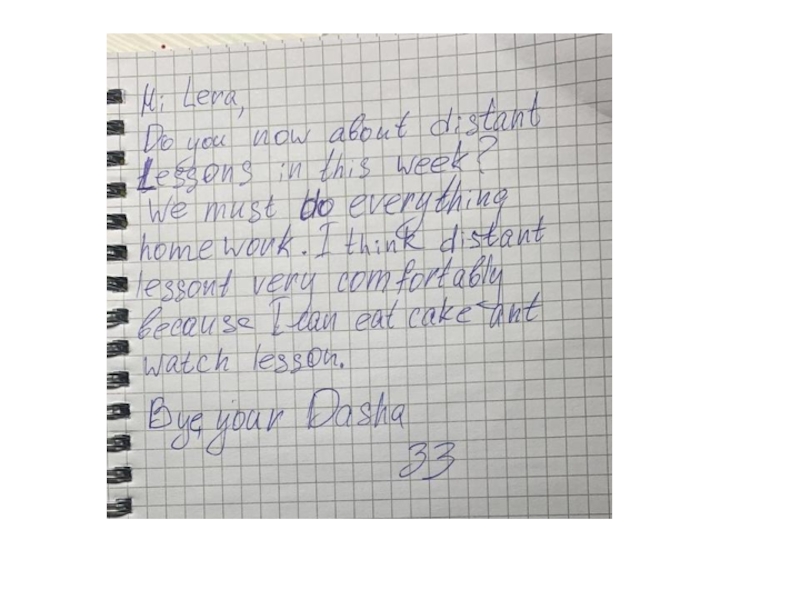 Hi Lera,
Do you now about distant
Lessons in this week?
We must do everything
home work. I think distant
lessont very comfortably
because I can eat cake ant
watch lesson.
Bye, your Dasha
33